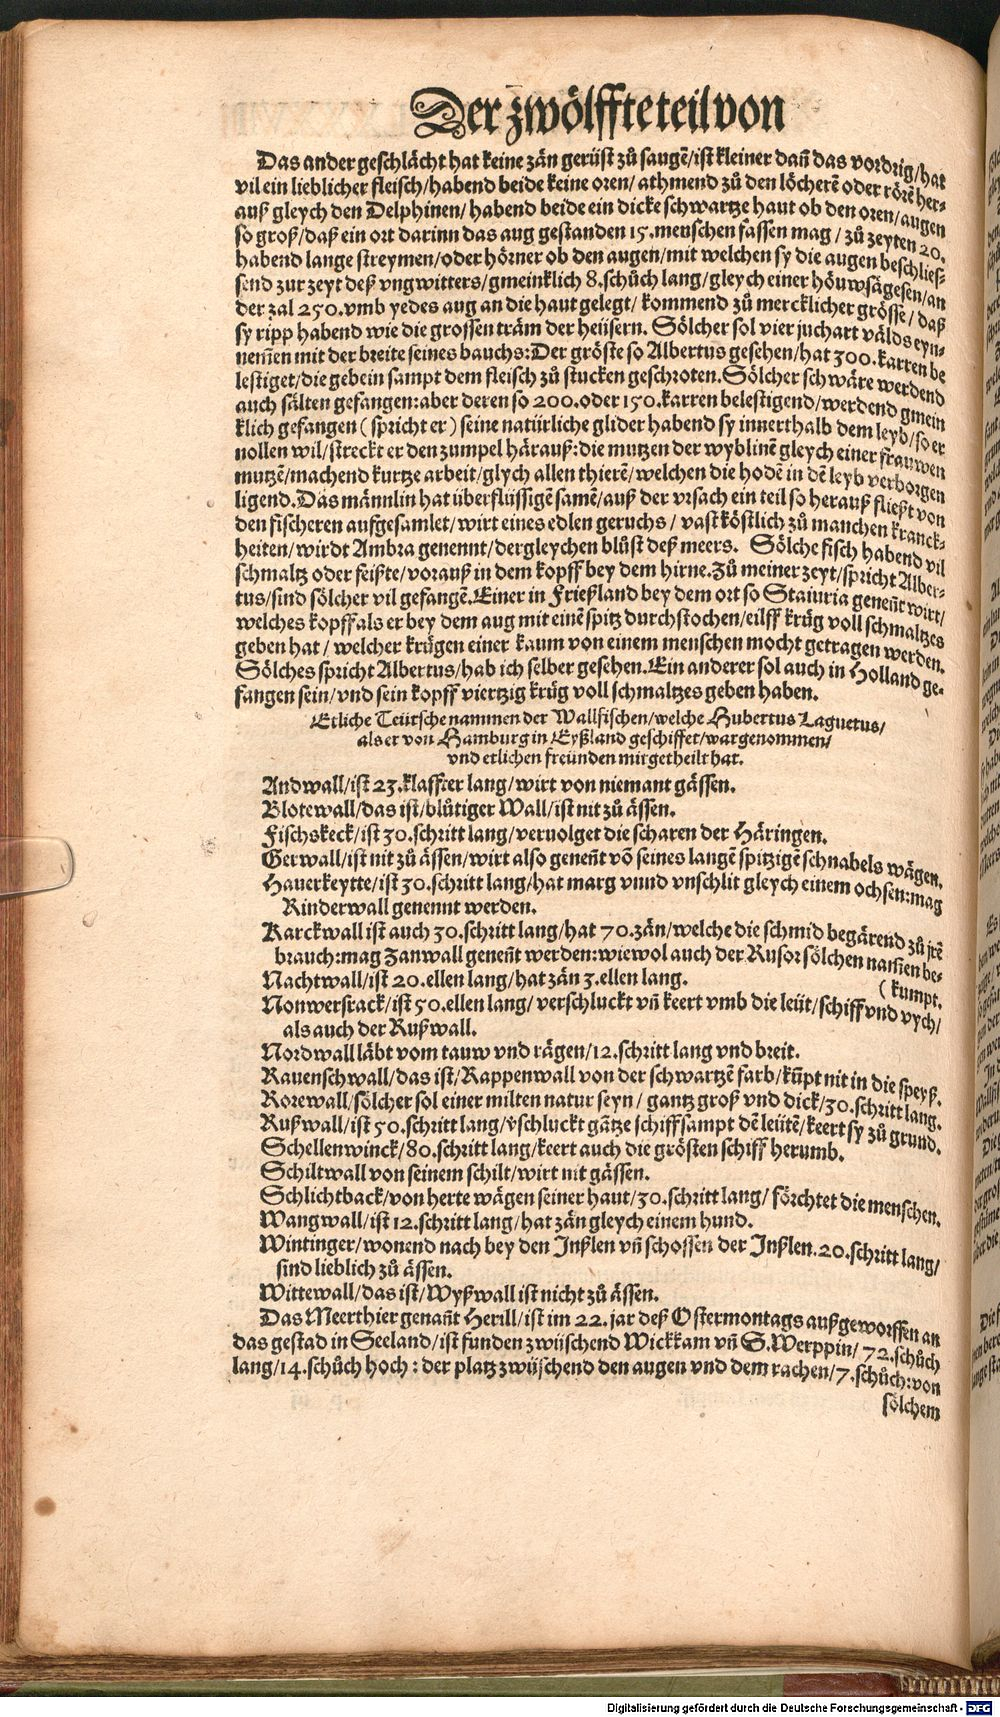 Der zwölffte teil von
Das ander geschlächt hat keine zän gerüst zů saugē/ist kleiner dañ das vordrig/hat
vil ein lieblicher fleisch/habend beide keine oren/ athmend zů den löcherē oder rörē her-
auß gleych den Delphinen/ habend beide ein dicke schwartze haut ob den oren/ augen
so groß/daß ein ort darinn das aug gestanden 15. menschen fassen mag / zů zeyten 20.
habend lange streymen/oder hörner ob den augen/mit welchen sy die augen beschlies-
send zur zeyt deß vngwitters/gmeinklich 8. schůch lang/gleych einer höuwsägesen/an
der zal 250. vmb yedes aug an die haut gelegt/ kommend zů mercklicher grösse / daß
sy ripp habend wie die grossen träm der heüsern. Sölcher sol vier juchart välds eyn-
nem̄en mit der breite seines bauchs: Der gröste so Albertus gesehen/hat 300. karren be
lestiget/die gebein sampt dem fleisch zů stucken geschroten. Sölcher schwäre werdend
auch sälten gefangen: aber deren so 200. oder 150. karren belestigend/werdend gmein
klich gefangen ( spricht er ) seine natürliche glider habend sy innerthalb dem leyb/ so er
nollen wil/streckt er den zumpel härauß: die mutzen der wyblinē gleych einer frauwen
mutzē/machend kurtze arbeit/glych allen thierē/welchen die hodē in dē leyb verborgen
ligend. Das männlin hat überflüssigē samē/auß der vrsach ein teil so herauß fließt von
den fischeren aufgesamlet/wirt eines edlen geruchs / vast köstlich zů manchen kranck-
heiten/wirdt Ambra genennt/dergleychen blůst deß meers. Sölche fisch habend vil
schmaltz oder feißte/vorauß in dem kopff bey dem hirne. Zů meiner zeyt/spricht Alber-
tus/sind sölcher vil gefangē. Einer in Frießland bey dem ort so Stauria geneñt wirt/
welches kopff als er bey dem aug mit einē spitz durchstochen/eilff krüg voll schmaltzes
geben hat / welcher krügen einer kaum von einem menschen mocht getragen werden.
Sölches spricht Albertus/hab ich selber gesehen. Ein anderer sol auch in Holland ge-
fangen sein/vnd sein kopff viertzig krüg voll schmaltzes geben haben.
Etliche Teütsche nammen der Wallfischen/welche Hubertus Laguetus/
als er von Hamburg in Eyßland geschiffet/wargenommen/
vnd etlichen freünden mitgetheilt hat.
Andwall/ist 23. klaffter lang/wirt von niemant gässen.
Blotewall/das ist/blůtiger Wall/ist nit zů ässen.
Fischskeck/ist 30. schritt lang/veruolget die scharen der Häringen.
Gerwall/ist nit zů ässen/wirt also geneñt vō seines langē spitzigē schnabels wägen.
Hauerkeytte/ist 30. schritt lang/hat marg vnnd vnschlit gleych einem ochsen: mag
Rinderwall genennt werden.
Karckwall ist auch 30. schritt lang/hat 70. zän/welche die schmid begärend zů jrē
brauch: mag Zanwall geneñt werden: wiewol auch der Rusor sölchen nam̄en be-
( kumpt.
Nachtwall/ist 20. ellen lang/hat zän 3. ellen lang.
Nonwersrack/ist 50. ellen lang/ verschluckt vñ keert vmb die leüt/ schiff vnd vych/
als auch der Rußwall.
Nordwall läbt vom tauw vnd rägen/12. schritt lang vnd breit.
Rauenschwall/das ist/Rappenwall von der schwartzē farb/kūpt nit in die speyß.
Rorewall/sölcher sol einer milten natur seyn / gantz groß vnd dick/30. schritt lang.
Rußwall/ist 50. schritt lang/v̄schluckt gātze schiff sampt dē leütē/keert sy zů grund.
Schellenwinck/80. schritt lang/keert auch die grösten schiff herumb.
Schiltwall von seinem schilt/wirt nit gässen.
Schlichtback/von herte wägen seiner haut/30. schritt lang/ förchtet die menschen.
Wangwall/ist 12. schritt lang/hat zän gleych einem hund.
Wintinger/wonend nach bey den Inßlen vñ schossen der Inßlen. 20. schritt lang/
sind lieblich zů ässen.
Wittewall/das ist/Wyßwall ist nicht zů ässen.
Das Meerthier genañt Herill/ist im 22. jar deß Ostermontags außgeworffen an
das gestad in Seeland/ist funden zwüschend Wickkam vñ S. Werppin/ 72. schůch
lang/14. schůch hoch : der platz zwüschend den augen vnd dem rachen/7. schůch: von
sölchem
Digitalisierung gefördert durch die Deutsche Forschungsgemeinschaft - DFG